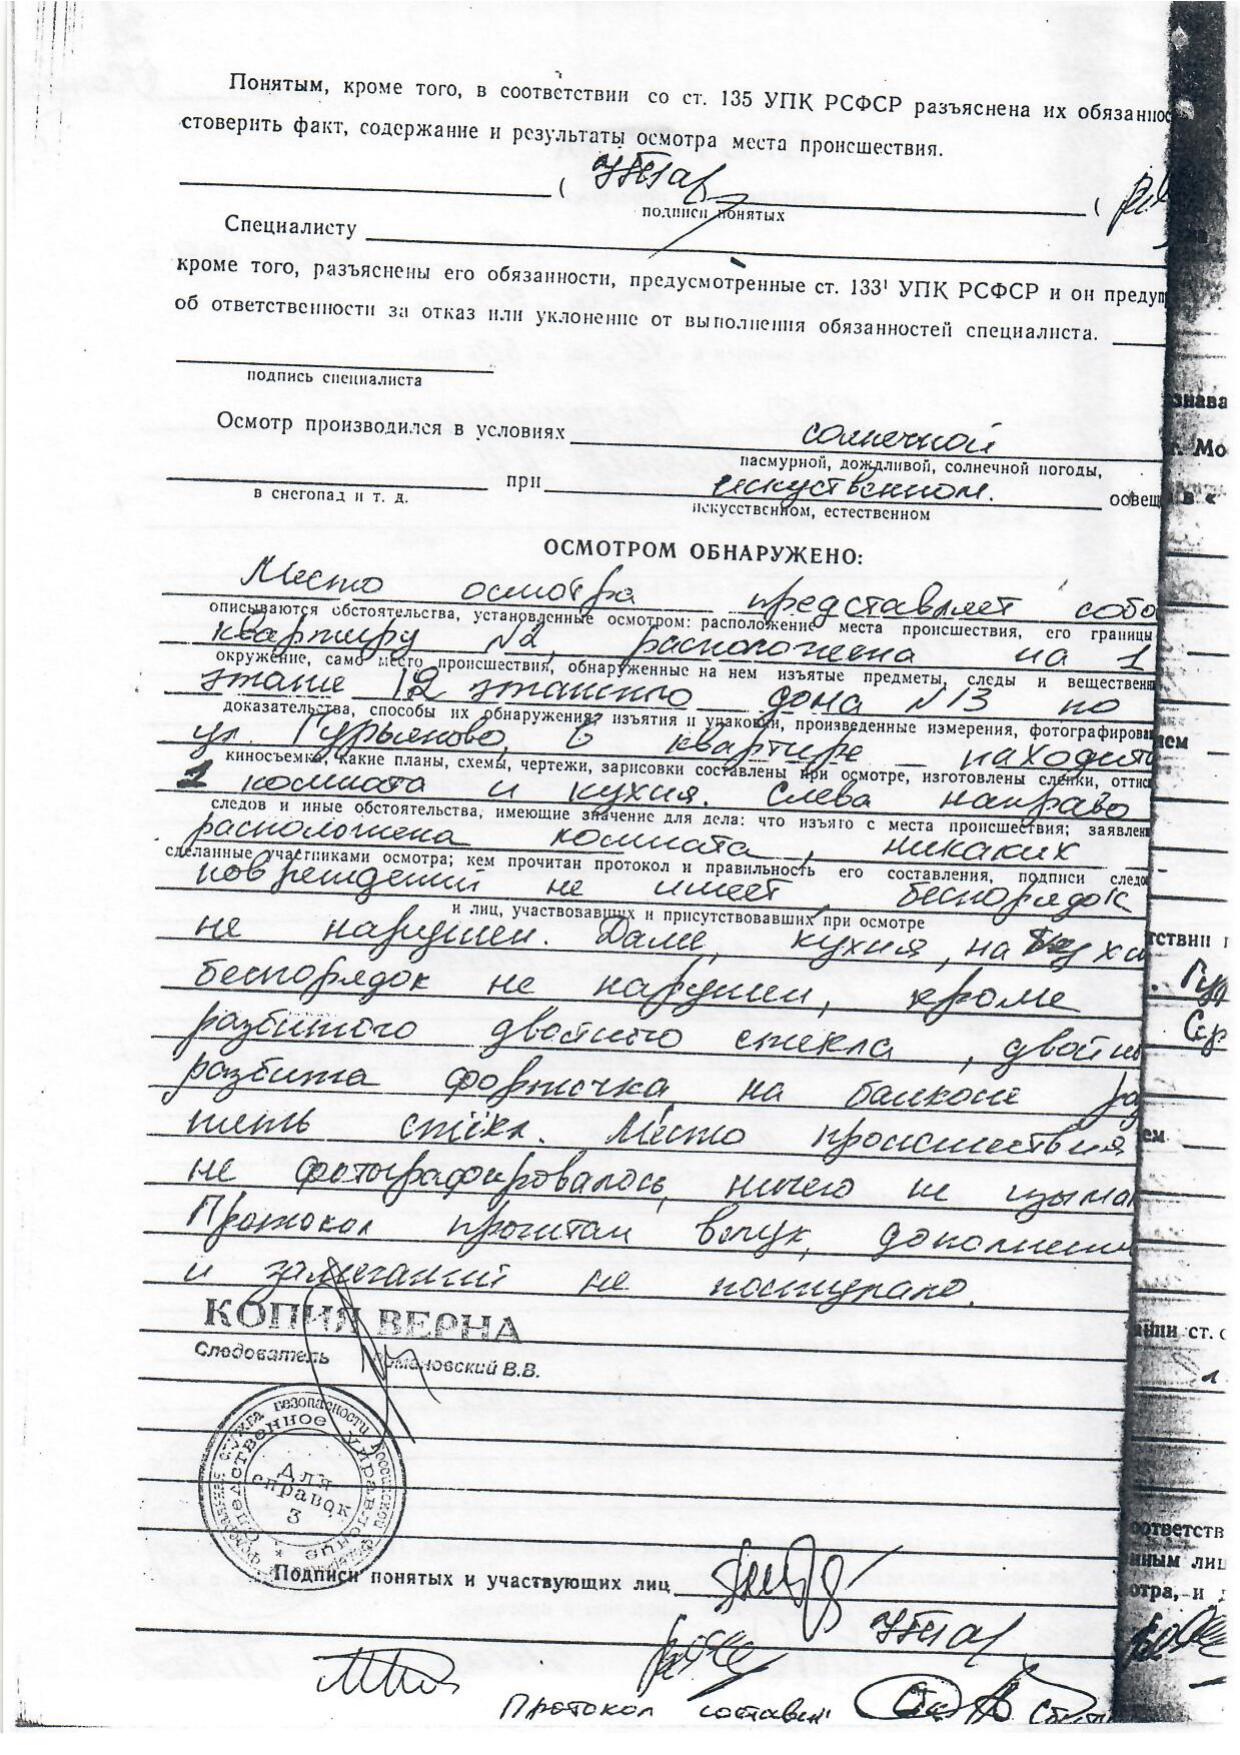 Понятым, кроме того, в соответствии со ст. 135 УПК РСФСР разъяснена их обязаннос
стоверить факт, содержание и результаты осмотра места происшествия.
подписи понятых
Специалисту
кроме того, разъяснены его обязанности, предусмотренные ст. 133¹ УПК РСФСР и он предуп
об ответственности за отказ или уклонение от выполнения обязанностей специалиста.
подпись специалиста
Осмотр производился в условиях солнечной
пасмурной, дождливой, солнечной погоды,
при искуственном. освещ
в снегопад и т. д. искусственном, естественном
ОСМОТРОМ ОБНАРУЖЕНО:
Место осмотра представляет собо
описываются обстоятельства, установленные осмотром: расположение места происшествия, его границы
квартиру №2, расположена на 1
окружение, само место происшествия, обнаруженные на нем изъятые предметы, следы и вещественн
этаже 12 этажного дома №13 по
доказательства, способы их обнаружения, изъятия и упаковки, произведенные измерения, фотографирован
ул. Гурьяново, в квартире находит
киносъемка, какие планы, схемы, чертежи, зарисовки составлены при осмотре, изготовлены слепки, оттис
1 комната и кухня. Слева направо
следов и иные обстоятельства, имеющие значение для дела: что изъято с места происшествия; заявлен
расположена комната, никаких
сделанные участниками осмотра; кем прочитан протокол и правильность его составления, подписи следо
повреждений не имеет, беспорядок
и лиц, участвовавших и присутствовавших при осмотре
не нарушен. Далее, кухня, на
беспорядок не нарушен, кроме
разбитого двойного стекла, двойн
разбита форточка, на балконе
пять стёкл. Место происшествия
не фотографировалось, ничего не изыма
Протокол прочитан вслух, дополнени
и замечаний не поступало.
КОПИЯ ВЕРНА
Следователь Романовский В.В.
Федеральная служба безопасности Российской Федерации
Следственное управление
Для
справок
3
Подписи понятых и участвующих лиц
Протокол составил
знава
. Мо
в «
ем
тствии
ем
нии ст.
оответств
нным лиц
отра, и